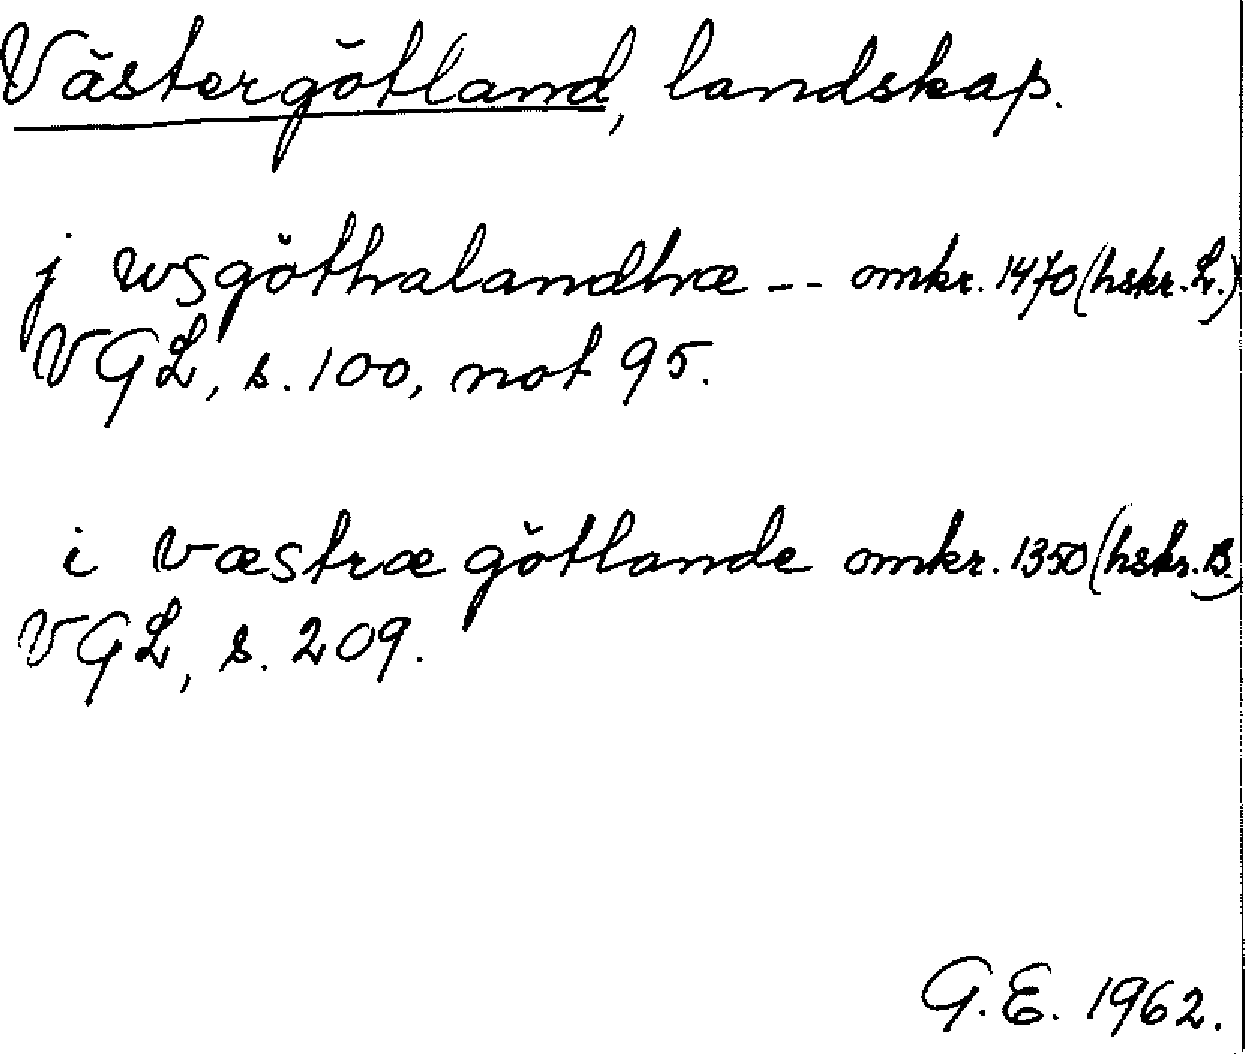 Västergötland, landskap.
j wsgöthalandhæ -- omkr. 1470 (hskr. L.)
VGL, s. 100, not 95.
i væstræ götlande omkr. 1350 (hskr. B.)
VGL, s. 209.
G.E. 1962.